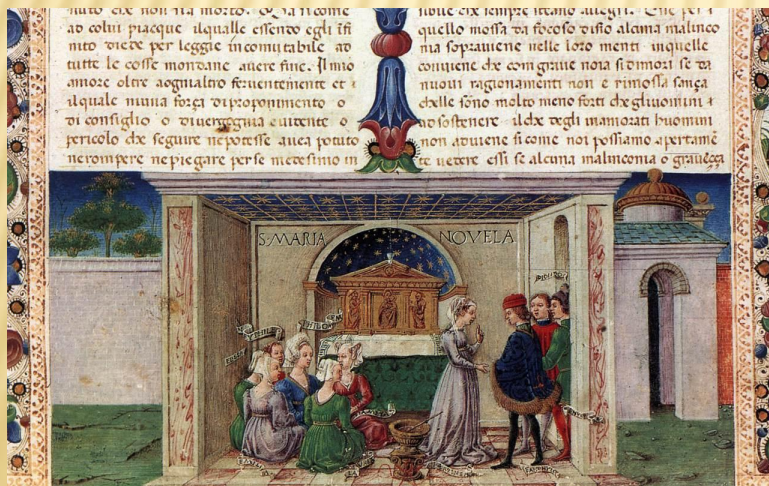 ad colui piacque ilqualle essendo egli ifi
nito diede per leggie incomutabile ad
tutte le cosse mondane avere fine. Il mio
amore oltre aognialtro ferventemente et
ilquale niuna força di proponimento o
di consiglio o di vergogna evitente o
pericolo che seguire nepotesse avea potuto
ne rompere ne piegare per se medesimo in
che sempre stano allegri. Che per i
quello mossa da focoso disio alcuna malinco
nia sopraviene nelle loro menti inquelle
conviene che con grave noia si dimori se da
nuovi ragionamenti non è rimossa sança
chelle sono molto meno forti che gliuomini
ad sostenere ilche degli inamorati huomini
non adviene si come noi possiamo apertame
te vedere essi se alcuna malinconia o graveçça
S·MARIA NOVELA